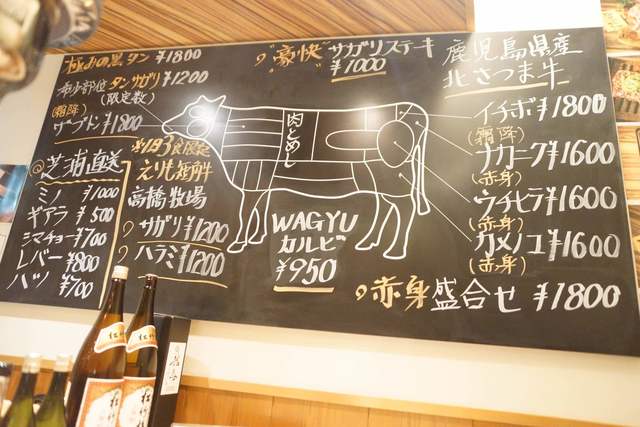 極みの黒タン ¥1800
希少部位 タンサガリ ¥1200
(限定数)
(霜降)
ザブトン ¥1800
芝浦直送
ミノ ¥1000
ギアラ ¥500
シマチョー ¥700
レバー ¥800
ハツ ¥700
えりも短角牛
高橋牧場
サガリ ¥1200
ハラミ ¥1200
"豪快"サガリステーキ
¥1000
肉とめし
WAGYU
カルビ
¥950
鹿児島県産
北さつま牛
イチボ ¥1800
(霜降)
ナカニク ¥1600
(赤身)
ウチヒラ ¥1600
(赤身)
カメノコ ¥1600
(赤身)
赤身盛合せ ¥1800
松竹